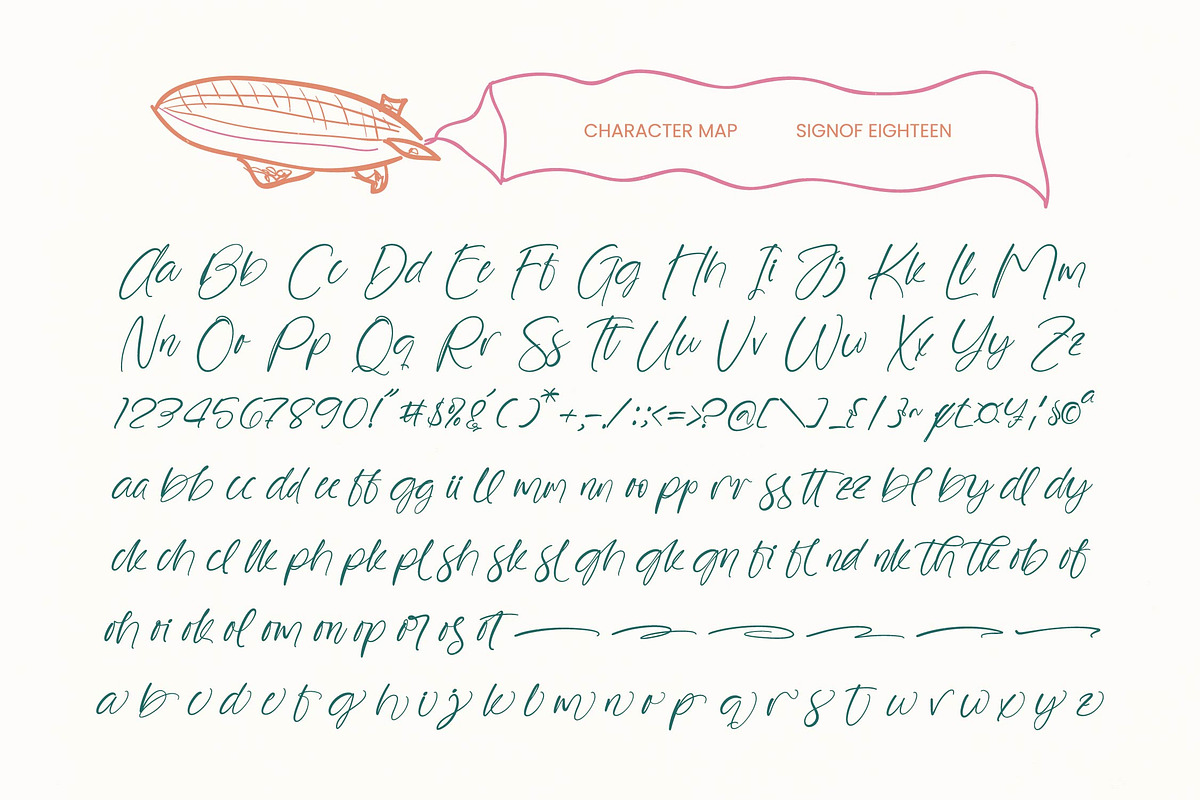 CHARACTER MAP SIGNOF EIGHTEEN
Aa Bb Cc Dd Ee Ff Gg Hh Ii Jj Kk Ll Mm
Nn Oo Pp Qq Rr Ss Tt Uu Vv Ww Xx Yy Zz
1234567890!"#$%&'()*+,-./:;<=>?@[\]_{|}~¢£¤¥¦§©ª
aa bb cc dd ee ff gg ii ll mm nn oo pp rr ss tt zz bl by dl dy
ck ch cl lk ph pk pl sh sk sl gh gk gn fi fl nd nk th tk ob of
oh oi ok ol om on op or os ot
a b c d e f g h i j k l m n o p q r s t u v w x y z